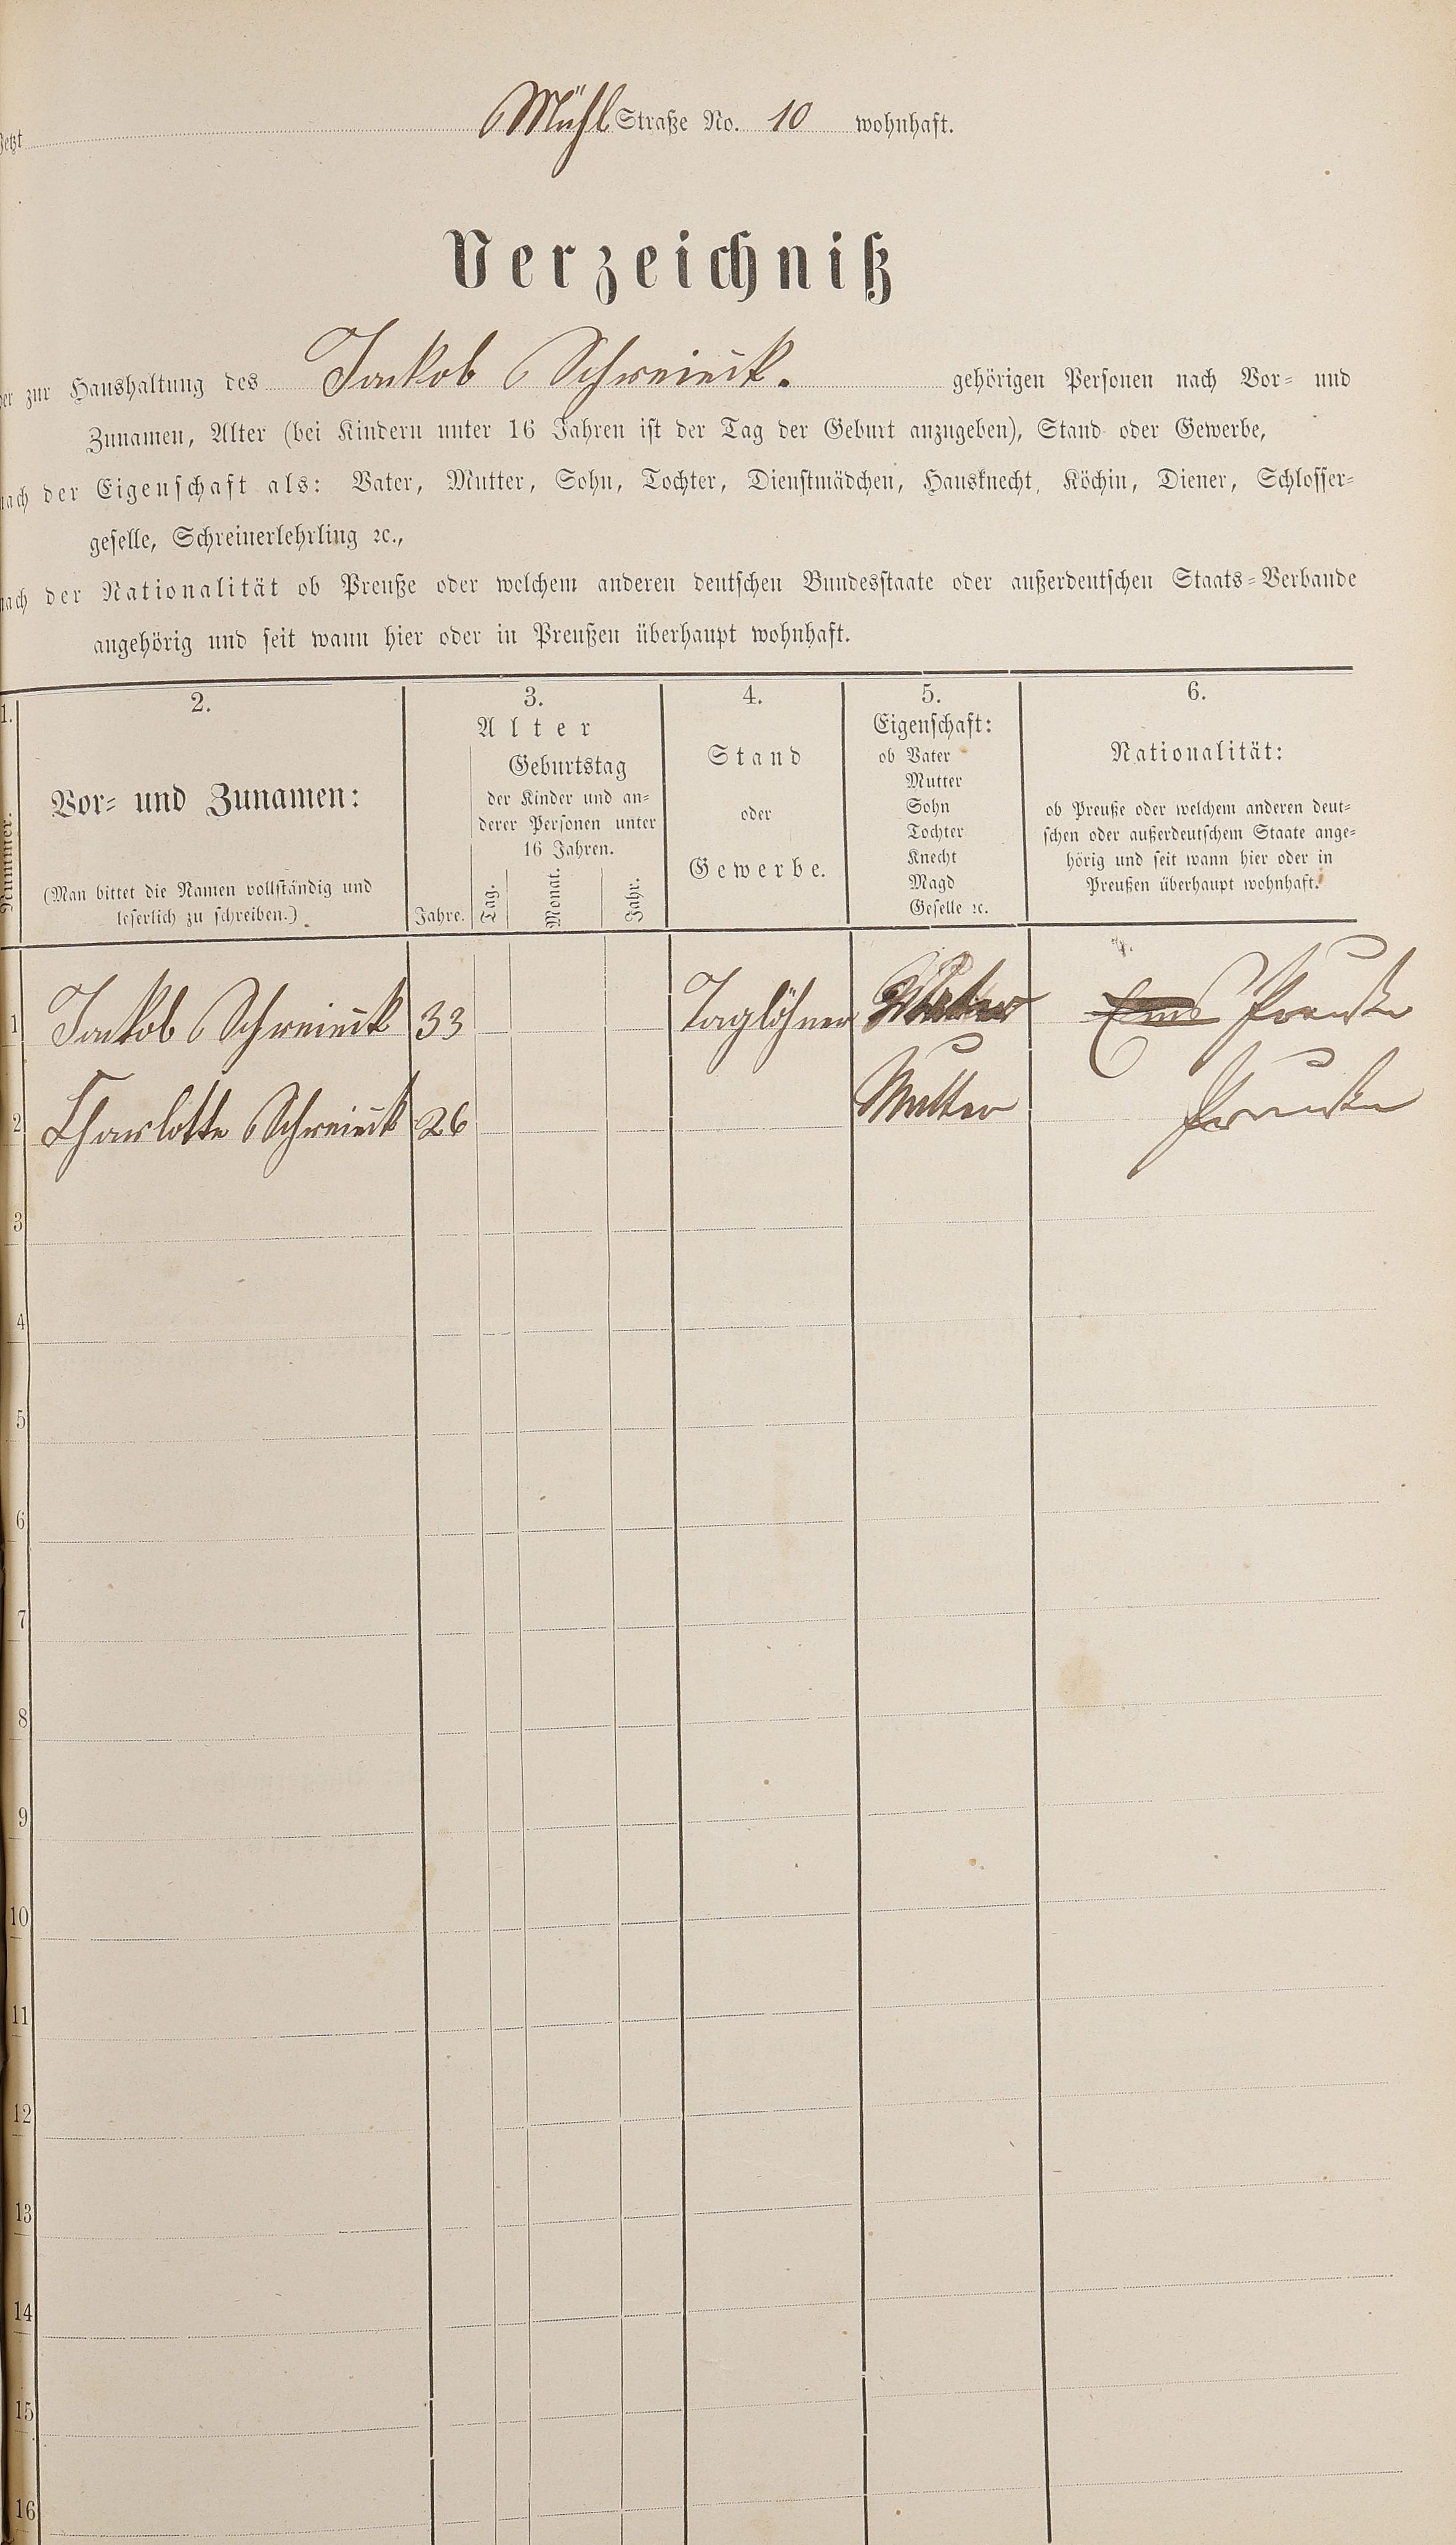 Jetzt Mühl Straße No. 10 wohnhaft.
Verzeichniß
der zur Haushaltung des Jakob Schweiück. gehörigen Personen nach Vor= und
Zunamen, Alter (bei Kindern unter 16 Jahren ist der Tag der Geburt anzugeben), Stand oder Gewerbe,
nach der Eigenschaft als: Vater, Mutter, Sohn, Tochter, Dienstmädchen, Hausknecht, Köchin, Diener, Schlosser=
geselle, Schreinerlehrling ꝛc.,
nach der Nationalität ob Preuße oder welchem anderen deutschen Bundesstaate oder außerdeutschen Staats=Verbande
angehörig und seit wann hier oder in Preußen überhaupt wohnhaft.
1.
Nummer.
2.
Vor= und Zunamen:
(Man bittet die Namen vollständig und
leserlich zu schreiben.)
3.
Alter
Jahre.
Geburtstag
der Kinder und an=
derer Personen unter
16 Jahren.
Tag.
Monat.
Jahr.
4.
Stand
oder
Gewerbe.
5.
Eigenschaft:
ob Vater
Mutter
Sohn
Tochter
Knecht
Magd
Geselle ꝛc.
6.
Nationalität:
ob Preuße oder welchem anderen deut=
schen oder außerdeutschem Staate ange=
hörig und seit wann hier oder in
Preußen überhaupt wohnhaft.
1 Jakob 33 Taglöhner Vater Preuße
2 Charlotte 26 Mutter Preußen
3
4
5
6
7
8
9
10
11
12
13
14
15
16